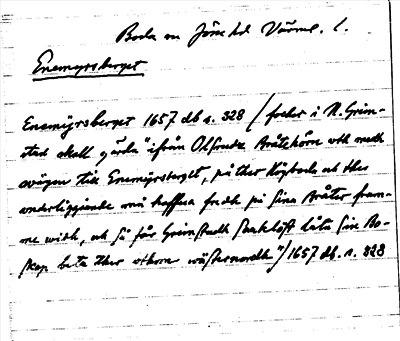 Boda sn Jösse hd Värml. l.
Enemyrsberget
Enemÿrsberget 1657 db s. 328 / freder i N. Grim-
stad skall gärda" ifrån Olsrudz Bråtehörn och medh
wägen till Enemÿrsberget, på ther Högboda och thes
underliggiande må haffua fredh på sina Bråter fram-
me widh, och så får Grimstadh låta sin Bo-
skap beta ther wtom wästernordh"/1657 db. s. 328